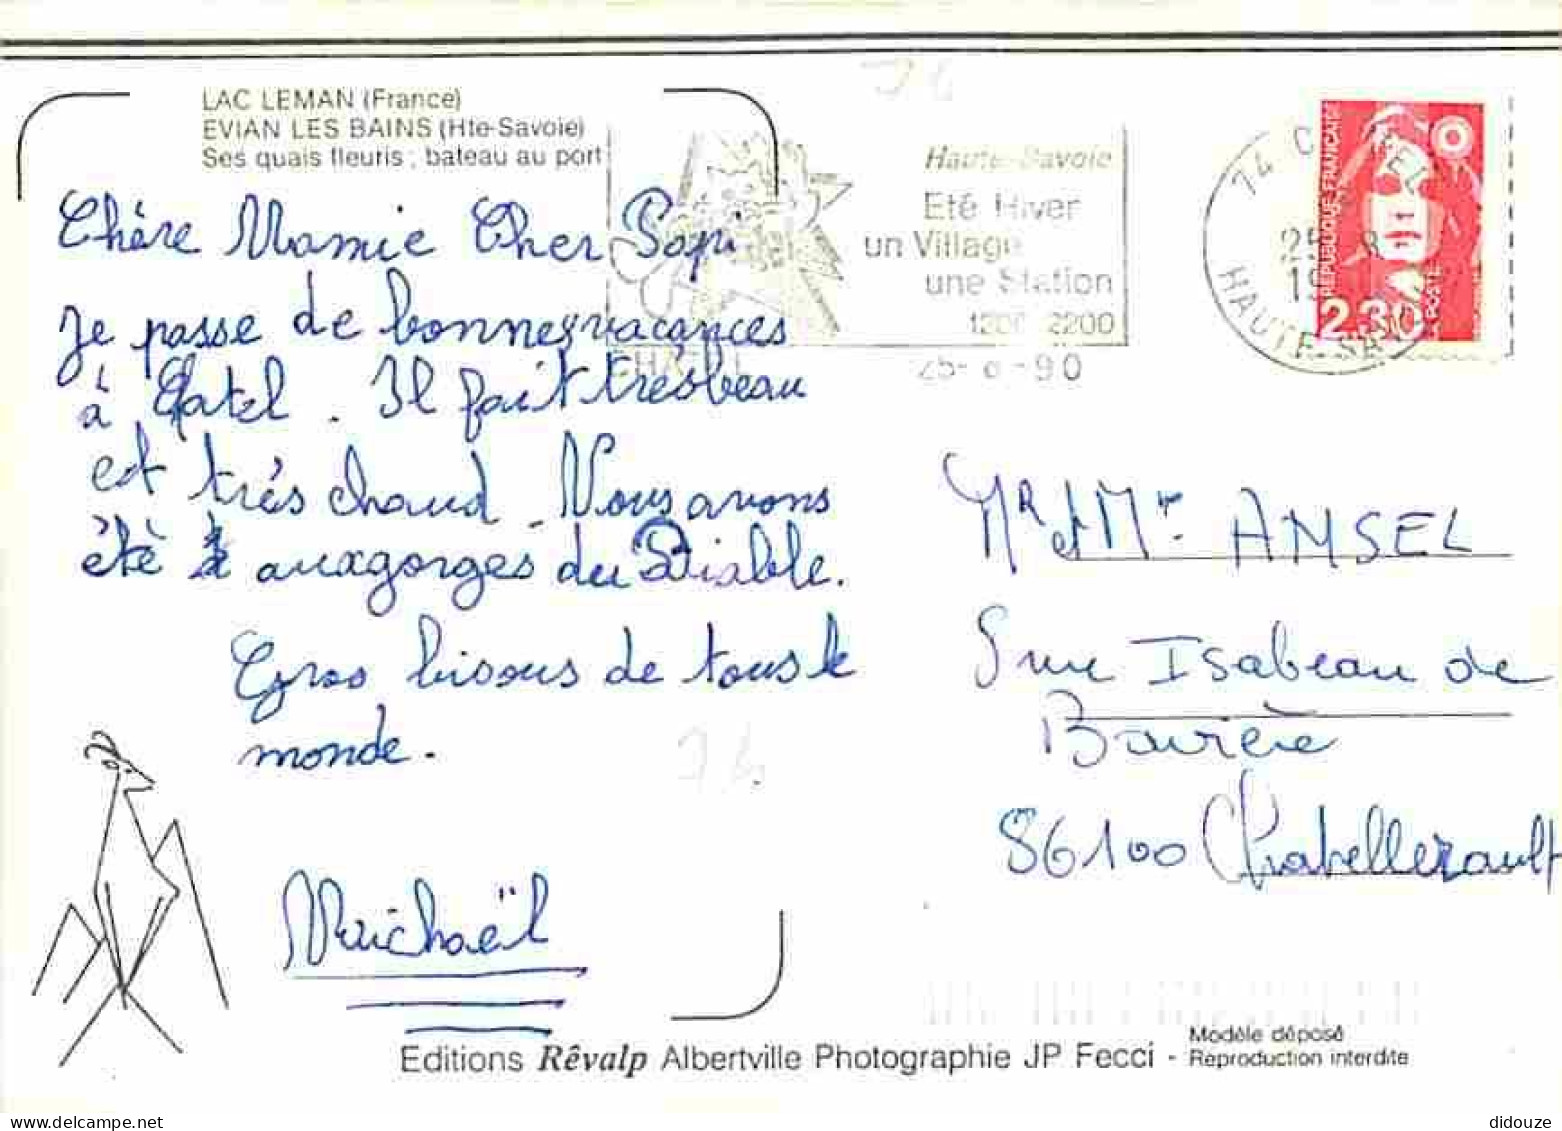 LAC LEMAN (France)
EVIAN LES BAINS (Hte-Savoie)
Ses quais fleuris ; bateau au port
Haute-Savoie
Eté Hiver
un Village
une Station
1200 2200
25-8-90
74
25 8
19
HAUTE-SAVOIE
RÉPUBLIQUE FRANÇAISE
2,30
LA POSTE
Chère Mamie Cher Papi
je passe de bonnes vacances
à Catel. Il fait très beau
et très chaud. Nous avons
étè aux gorges du Diable.
Gros bisous de tous le
monde.
Mickaël
Mr et Mme ANSEL
rue Isabeau de
Bavière
86100 Chatellerault
74
Editions Rêvalp Albertville Photographie JP Fecci - Modèle déposé
Reproduction interdite
delcampe.net
didouze